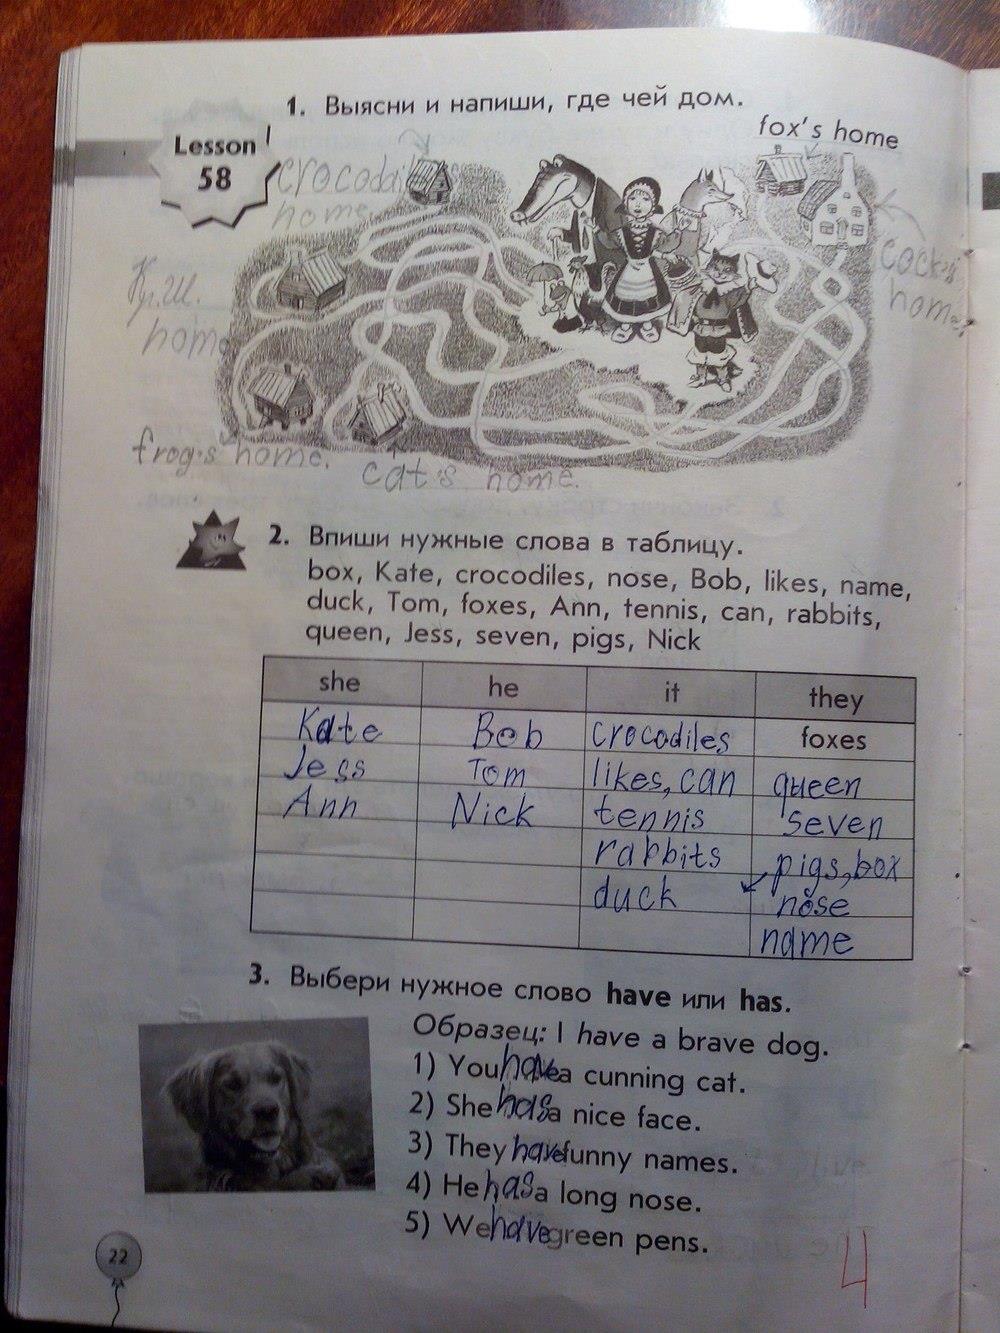 1. Выясни и напиши, где чей дом.
fox's home
Lesson
58
home
Кр.Ш.
home
cock's
home.
frog's home.
cat's home.
2. Впиши нужные слова в таблицу.
box, Kate, crocodiles, nose, Bob, likes, name,
duck, Tom, foxes, Ann, tennis, can, rabbits,
queen, Jess, seven, pigs, Nick
she he it they
Kate Bob crocodiles foxes
Jess Tom likes, can queen
Ann Nick tennis seven
rabbits pigs, box
duck nose
name
3. Выбери нужное слово have или has.
Образец: I have a brave dog.
1) You have a cunning cat.
2) She has a nice face.
3) They have funny names.
4) He has a long nose.
5) We have green pens.
22
4